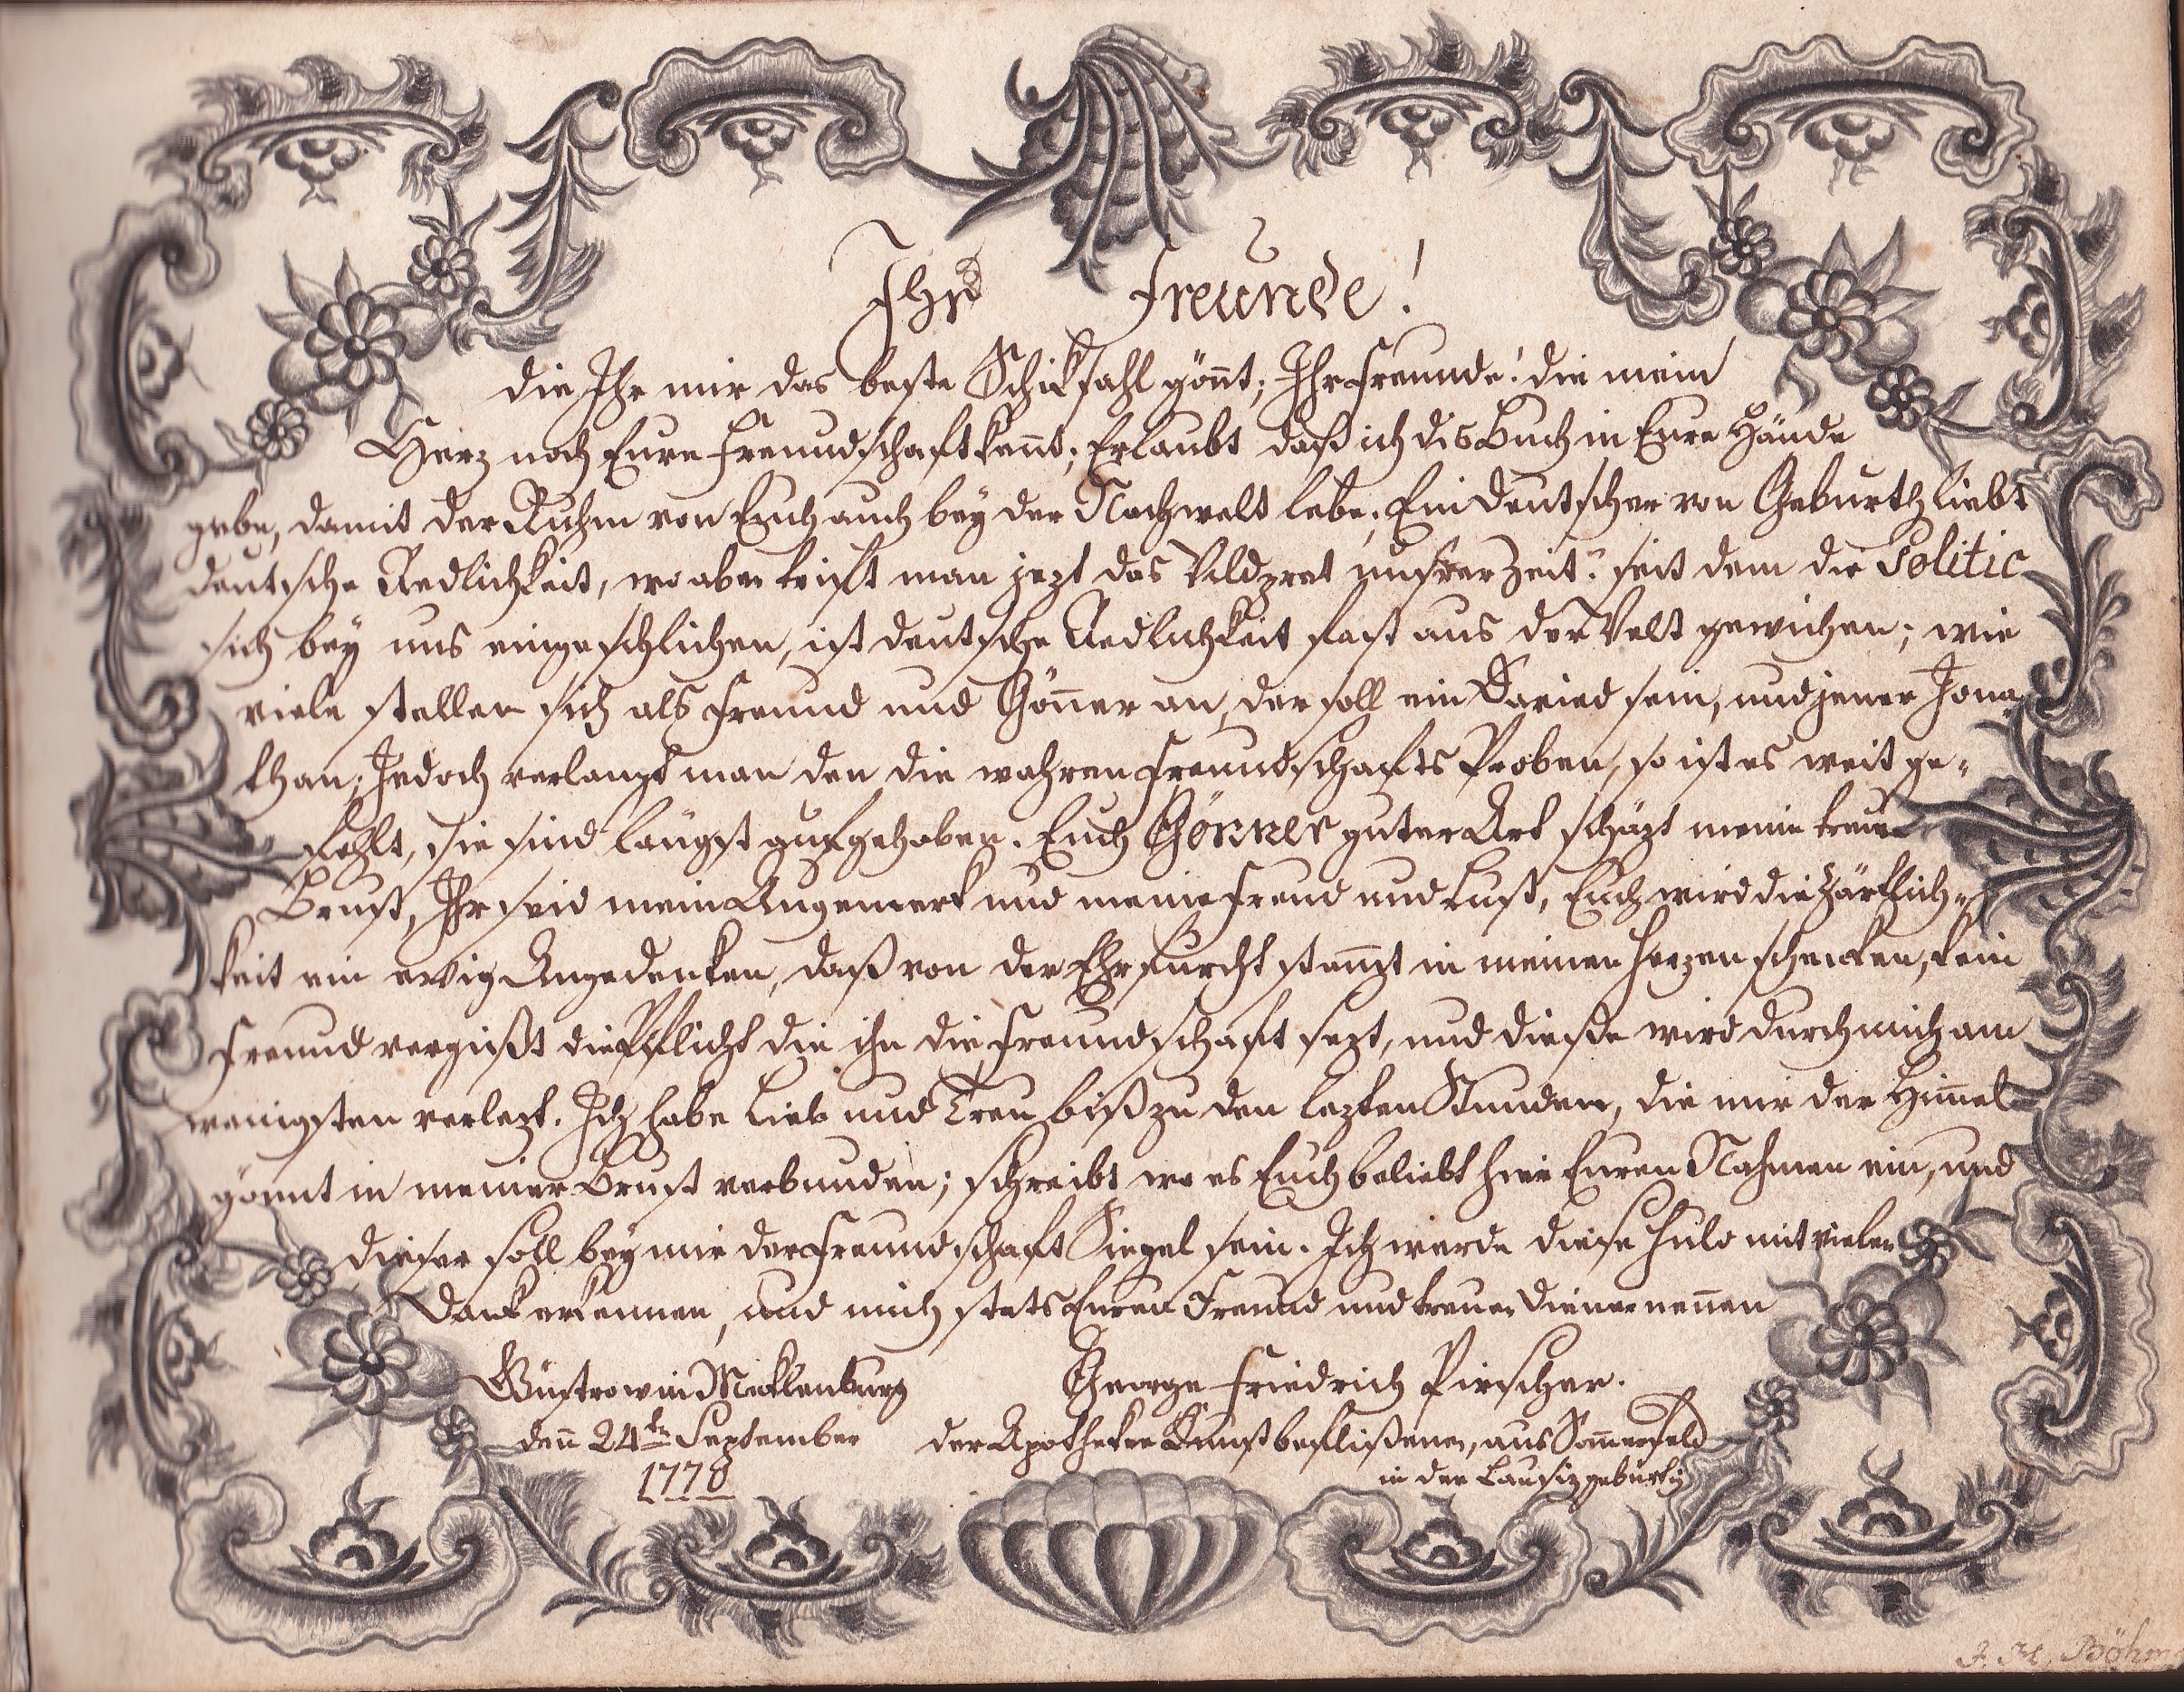 Ihr Freunde!
die Ihr mir das beste Schiksahl gönt; Ihr Freunde! die mein
Herz noch Eure Freundschaft kent; Erlaubt daß ich dis Buch in Eure Hände
gebe, damit der Ruhm von Euch auch bey der Nachwelt lebe; Ein deutscher von Geburth liebt
deutsche Redlichkeit, wo aber trift man jezt das Wildpret unsrer Zeit? seit dem die Politic
sich bey uns eingeschlichen, ist deutsche Redlichkeit fast aus der Welt gewichen; wie
viele stellen sich als Freund und Göner an, der soll ein David sein, und jener Jona-
than; Jedoch verlangt man den die wahren Freundschafts Proben, so ist es weit ge-
fehlt, sie sind längst aufgehoben. Euch Gönner guter Art schäzt meine treue
Brust, Ihr seid mein Augenmerk und meine Freud und Lust, Euch wird die Zärtlich-
keit ein ewig Angedenken, daß von der Ehrfurcht stamt in meinen Herzen schenken, kein
Freund vergißt die Pflicht die ihn die Freundschaft sezt, und dieße wird durch mich am
wenigsten verlezt. Ich habe Lieb und Treu biß zu den lezten Stunden, die mir der Himel
gönnt in meiner Brust verbunden; schreibt wo es Euch beliebt hier Euren Nahmen ein, und
dieser soll bey mir der Freundschaft Siegel sein. Ich werde diese Huld mit vielen
Dank erkennen, und mich stets Euren Freund und treuen Diener nenen
Güstrow in Meklenburg George Friedrich Pirscher.
den 24ten September der Apotheker Kunst beflißener, aus Somerfeld
1778 in der Lausiz gebürtig
J. H. Böhm